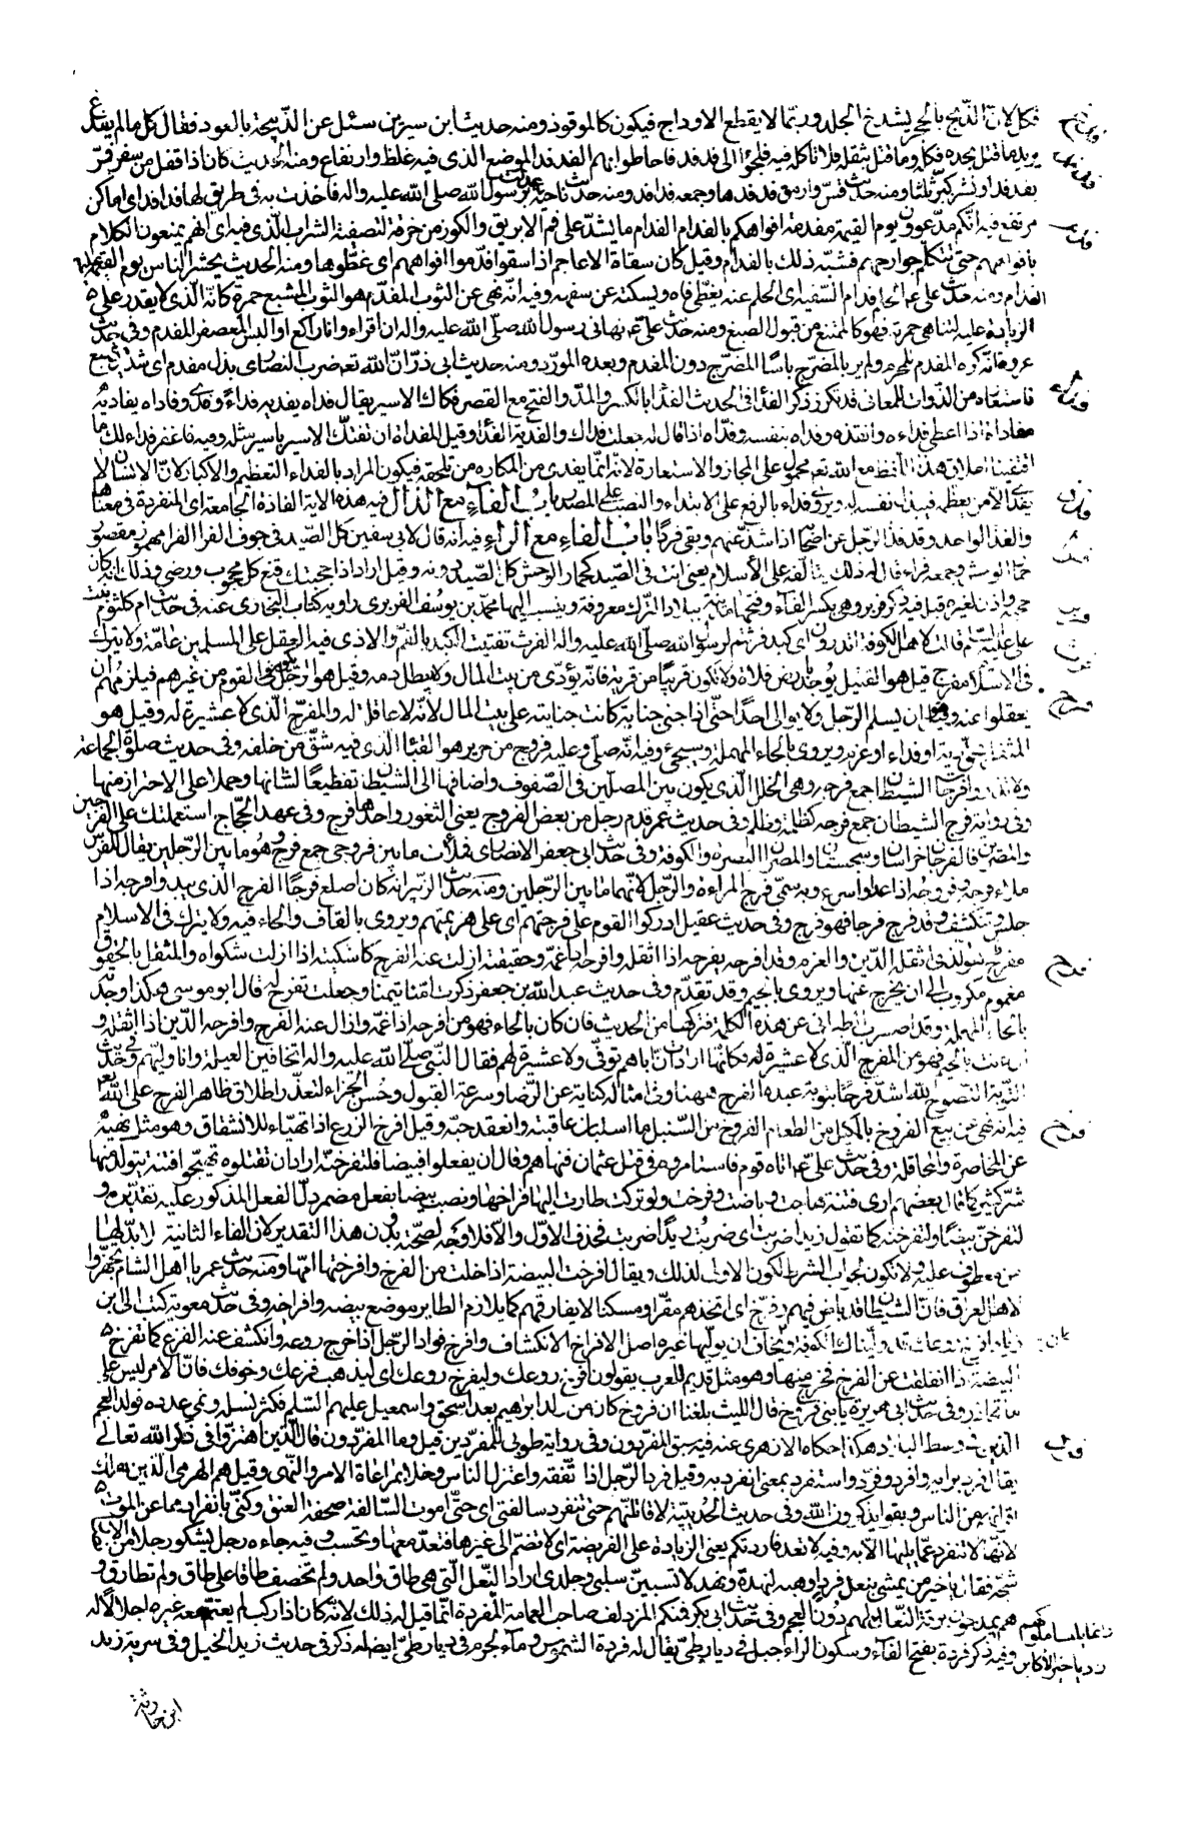 فكل لان الذبح بالحجر يشدخ الجلد وربّما لا يقطع الاوداج فيكون كالموقوذ ومنه حديث ابن سيرين سئل عن الذبيحة بالعود فقال كل مالم يفدغ
فدفد
يريد ما قتل بحده فكله وما قتل بثقله فلا تاكله فيه فلجؤا الى فدفد فاحاطوا بهم الفدفد الموضع الذى فيه غلظ وارتفاع ومنه الحديث كان اذا قفل من سفر فمرّ
بفدفد او نشز كبّر ثلثا ومنه حديث قسّ وارمق فدفدها وجمعه فدافد ومنه حديث ناجية عدلت برسول الله صلى الله عليه واله فاخذت به فى طريق لها فدافد اى اماكن
فدم
مرتفعة فيه انكم مدعوون يوم القيمة مفدمة افواهكم بالفدام الفدام ما يشدّ على فم الابريق والكوز من خرقة لتصفية الشراب الّذى فيه اى انهم يمنعون الكلام
بافواههم حتى تتكلم جوارحهم فشبّه ذلك بالفدام وقيل كان سقاة الاعاجم اذا سقوا فدّموا افواههم اى غطّوها ومنه الحديث يحشر الناس يوم القيمة عليهم
الفدام ومنه حديث على عم الحلم فدام السّفيه اى الحلم عنه يغطّى فاه ويسكته عن سفهه وفيه انّه نهى عن الثوب المفدّم هو الثوب المشبع حمرة كانّه الّذى لا يقدر على
الزيادة عليه لتناهى حمرته فهو كالممتنع من قبول الصبغ ومنه حديث علىّ عم نهانى رسول الله صلّى الله عليه واله ان اقراء وانا راكع او البس المعصفر المفدم وفى حديث
عروة انّه كره المفدم للمحرم ولم ير بالمضرّج باسًا المضرّج دون المفدم وبعده المورّد ومنه حديث ابى ذرّ انّ الله تعم ضرب النصارى بذل مفدم اى شديد مشبع
فدا
فاستعاره من الذوات للمعانى قد تكرر ذكر الفداء فى الحديث الفداء بالكسر والمدّ والفتح مع القصر فكاك الاسير يقال فداه يفديه فداءً وفدىً وفاداه يفاديه
مفاداة اذا اعطى فداءه وانقذه وفداه بنفسه وفدّاه اذا قال له جعلت فداك والفدية الفداء وقيل المفاداة ان تفتكّ الاسير باسير مثله وفيه فاغفر فداءً لك ما
اقتفينا اطلاق هذا اللّفظ مع الله تعم محمول على المجاز والاستعارة لانّه انّما يفدى من المكاره من تلحقه فيكون المراد بالفداء التعظيم والاكبار لانّ الانسان لا
فذذ
يفدّى الّا من يعظّمه فيبذل نفسه له ويروى فداء بالرفع على الابتداء والنصب على المصدر باب الفاء مع الذال فيه هذه الاية الفاذة الجامعة اى المنفردة فى معناها
والفذّ الواحد وقد فذّ الرّجل عن اصحابه اذا شذّ عنهم وبقى فردًا باب الفاء مع الراء فيه انه قال لابى سفين كل الصّيد فى جوف الفرا الفرا مهموز مقصور
حمار الوحش وجمعه فراء قال له ذلك يتألّفه على الأسلام يعنى انت فى الصّيد كحمار الوحش كل الصّيد دونه وقيل اراد اذا حجبتك قنع كل محجوب ورضى وذلك انه كان
فربر
حجبه واذن لغيره قبله فيه ذكر فربر وهى بكسر الفاء وفتحها مدينة ببلاد الترك معروفة وينسب اليها محمّد بن يوسف الفربرى راوية كتاب البخارى عنه فى حديث ام كلثوم بنت
فرث
على عليه السلم قالت لاهل الكوفة اتدرون اى كبد فرثتم لرسول الله صلّى الله عليه واله الفرث تفتيت الكبد بالغمّ والاذى فيه العقل على المسلمين عامّة ولا يترك
فرج
فى الاسلام مفرج قيل هو القتيل يوجد بارض فلاة ولا يكون قريبًا من قرية فانّه يؤدّى من بيت المال ولا يبطل دمه وقيل هو الرّجل يكون فى القوم من غيرهم فيلزمهم ان
يعقلوا عنه وقيل هو ان يسلم الرّجل ولا يوالى احدًا حتّى اذا جنى جناية كانت جنايته على بيت المال لانّه لا عاقلة له والمفرج الّذى لا عشيرة له وقيل هو
المثقل بحقّ دية او فداء او غرم ويروى بالحاء المهملة وسيجىء وفيه انّه صلّى وعليه فرّوج من حرير هو القباء الّذى فيه شقّ من خلفه وفى حديث صلوة الجماعة
ولا تذروا فرجات الشيطان جمع فرجة وهى الخلل الّذى يكون بين المصلّين فى الصّفوف واضافها الى الشيطان تفظيعًا لشانها وحملا على الاحتراز منها
وفى رواية فرج الشيطان جمع فرجة كظلمة وظلم وفى حديث عمر قدم رجل من بعض الفروج يعنى الثغور واحدها فرج وفى عهد الحجّاج استعملتك على الفرجين
والمصرين فالفرجان خراسان وسجستان والمصران البصرة والكوفة وفى حديث ابى جعفر الانصارى فملأت ما بين فروجى جمع فرج وهو ما بين الرّجلين يقال للفرس
ملاء فرجه وفروجه اذا عدا واسرع وبه سمّى فرج المراءة والرّجل لانّهما ما بين الرّجلين ومنه حديث الزبير انه كان اجلع فرجًا الفرج الذى يبدو فرجه اذا
جلس وتنكشف وقد فرج فرجا فهو فرج وفى حديث عقيل ادركوا القوم على فرجتهم اى على هزيمتهم ويروى بالقاف والحاء فيه ولا يترك فى الاسلام
فرح
مفرح هو الّذى اثقله الدّين والغرم وقد افرحه يفرحه اذا اثقله وافرحه اذا غمّه وحقيقته ازلت عنه الفرح كاشكيته اذا ازلت شكواه والمثقل بالحقوق
مغموم مكروب الى ان يخرج عنها ويروى بالجيم وقد تقدّم وفى حديث عبد الله بن جعفر ذكرت امّنا يتمنا وجعلت تفرح له قال ابو موسى هكذا وجدته
بالحاء المهملة وقد اضرب الطبرانى عن هذه الكلمة فتركها من الحديث فان كان بالحاء فهو من افرحه اذا غمّه وازال عنه الفرح وافرحه الدّين اذا اثقله و
ان كانت بالجيم فهو من المفرج الّذى لا عشيرة له فكانّها ارادت انّ اباهم توفّى ولا عشيرة لهم فقال النّبى صلّى الله عليه واله اتخافين العيلة وانا وليّهم وفى حديث
التوبة النّصوح لله اشدّ فرحًا بتوبة عبده الفرح ههنا وفى امثاله كناية عن الرّضا وسرعة القبول وحسن الجزاء لتعذّر اطلاق ظاهر الفرح على الله تعم
فرخ
فيه انه نهى عن بيع الفروخ بالمكيل من الطعام الفروخ من السّنبل ما استبان عاقبته وانعقد حبّه وقيل افرخ الزرع اذا تهيّاء للانشقاق وهو مثل نهيه
عن المخاضرة والمحاقلة وفى حديث علىّ عم اتاه قوم فاستامروه فى قتل عثمان فنهاهم وقال ان يفعلوا فبيضا فلتفرخنّه اراد ان تقتلوه تهيّجوا فتنة يتولد منها
شرّ كثير كما قال بعضهم ارى فتنة هاجت وباضت وفرخت ولو تركت طارت اليها فراخها ونصب بيضا بفعل مضمر دلّ الفعل المذكور عليه تقديره و
لتفرخنّ بيضًا فلتفرخنه كما تقول زيدا ضربت اى ضربت زيدًا ضربت فحذف الاوّل والّا فلا وجه لصحّته بدون هذا التقدير لان الفاء الثانية لا بدّ لها
من معطوف عليه ولا تكون لجواب الشرط لكون الاولى لذلك ويقال افرخت البيضة اذا خلت من الفرخ وافرختها امّها ومنه حديث عمر يا اهل الشام تجهّزوا
لاهل العراق فانّ الشيطان قد باض فيهم وفرّخ اى اتخذهم مقرّا ومسكنا لا يفارقهم كما يلازم الطاير موضع بيضه وافراخه وفى حديث معوية كتب الى ابن
زياد افرخ روعك قد وليناك الكوفة وكان يخاف ان يولّيها غيره اصل الافراخ الانكشاف وافرخ فواد الرّجل اذا خرج روعه وانكشف عنه الفزع كما تفرخ
البيضة اذا انفلقت عن الفرخ فخرج منها وهو مثل قديم للعرب يقولون افرخ روعك وليفرخ روعك اى ليذهب فزعك وخوفك فانّ الامر ليس على
ما تحاذر وفى حديث ابى هريرة يا بنى فروخ قال الليث بلغنا ان فروخ كان من ولد ابرهيم بعد اسحق واسمعيل عليهم السّلم فكثر نسله ونمى عدده فولد العجم
فرد
الذين فى وسط البلاد هكذا حكاه الازهرى عنه فيه سبق المفردون وفى رواية طوبى للمفردين قيل وما المفردون قال الّذين اهتزوا فى ذكر الله تعالى
يقال فرد برايه وافرد وفرّد واستفرد بمعنى انفرد به وقيل فرد الرّجل اذا تفقّه واعتزل الناس وخلا بمراعاة الامر والنّهى وقيل هم الهرمى الذين هلك
اقرانهم من الناس وبقوا يذكرون الله وفى حديث الحديبية لاقاتلنّهم حتى تنفرد سالفتى اى حتّى اموت السّالفة صفحة العنق وكنّى بانفرادها عن الموت
لانّها لا تنفرد عمّا يليها الا به وفيه لا تعد فاردتكم يعنى الزيادة على الفريضة اى لا تضمّ الى غيرها فتعدّ معها وتحتسب وفيه جاءه رجل يشكو رجلا من الانصار
شجّه فقال يا خير من يمشى بنعل فرد اوهبه لنهدة ونهد لا تسبينّ سلبى وجلدى اراد النّعل الّتى هى طاق واحد ولم تخصف طاقا على طاق ولم تطارق و
هم يمدحون برقة النّعال وانّما يلبسها ملوكهم دون العجم وفى حديث ابى بكر فمنكم المزدلف صاحب العمامة المفردة انّما قيل له ذلك لانّه كان اذا ركب لم يعتمّ معه غيره اجلالًا له
وفيه ذكر فردة بفتح الفاء وسكون الراء جبل فى ديار طىّ يقال له فردة الشموس وماء لجرم فى ديار طىّ ايضا له ذكر فى حديث زيد الخيل وفى سرية زيد
ابن حارثة